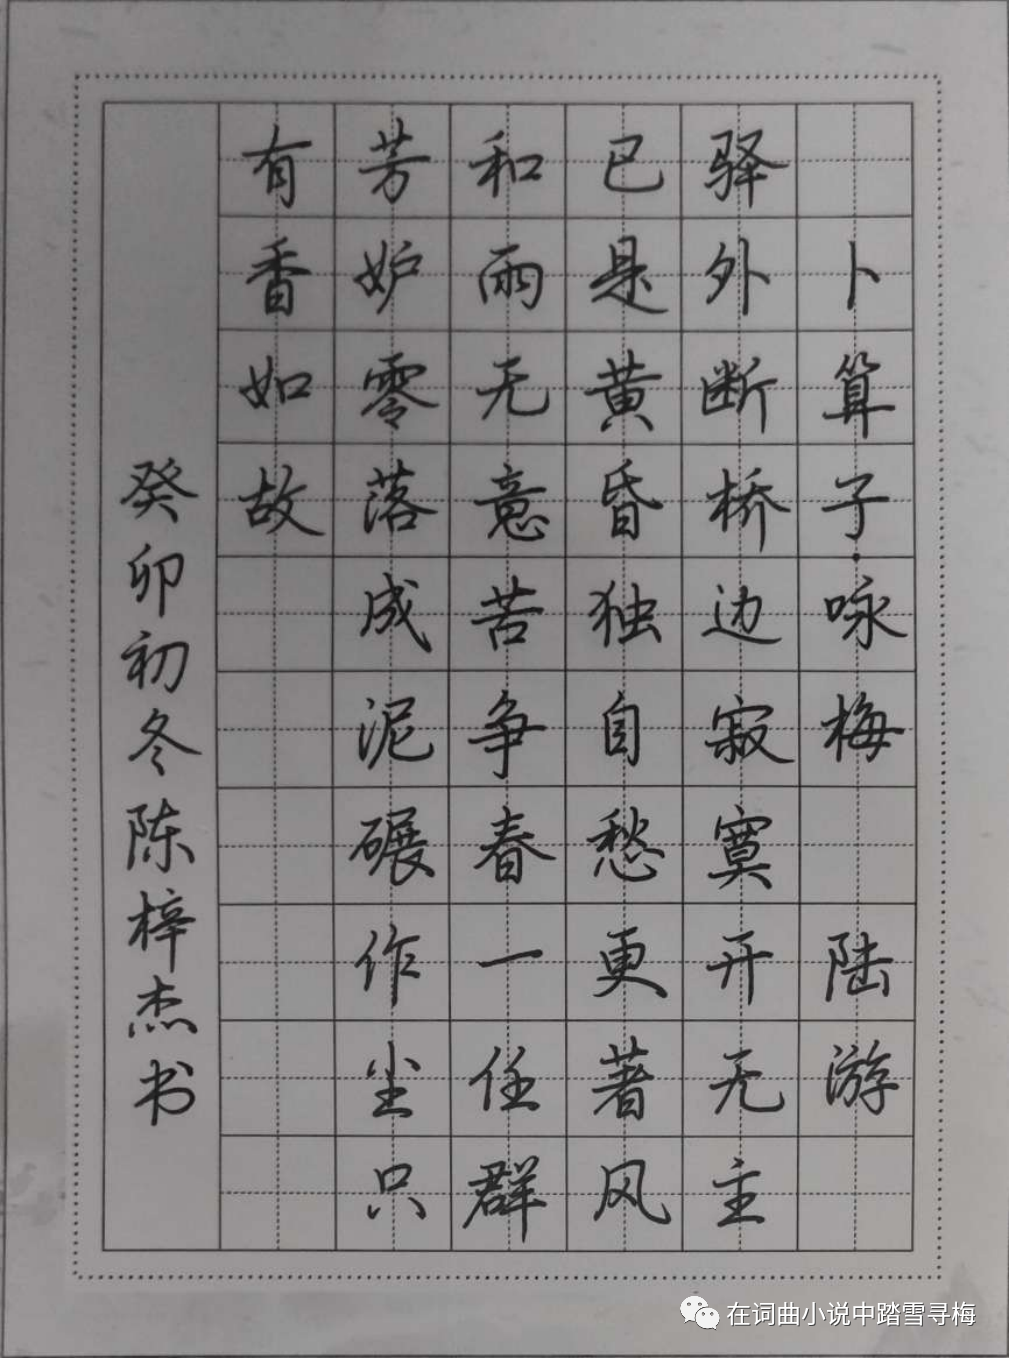 卜算子·咏梅 陆游
驿外断桥边寂寞开无主
已是黄昏独自愁更著风
和雨无意苦争春一任群
芳妒零落成泥碾作尘只
有香如故
癸卯初冬陈梓杰书
在词曲小说中踏雪寻梅